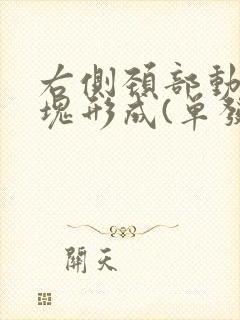 右側頚部動
塊形成(单發
開天